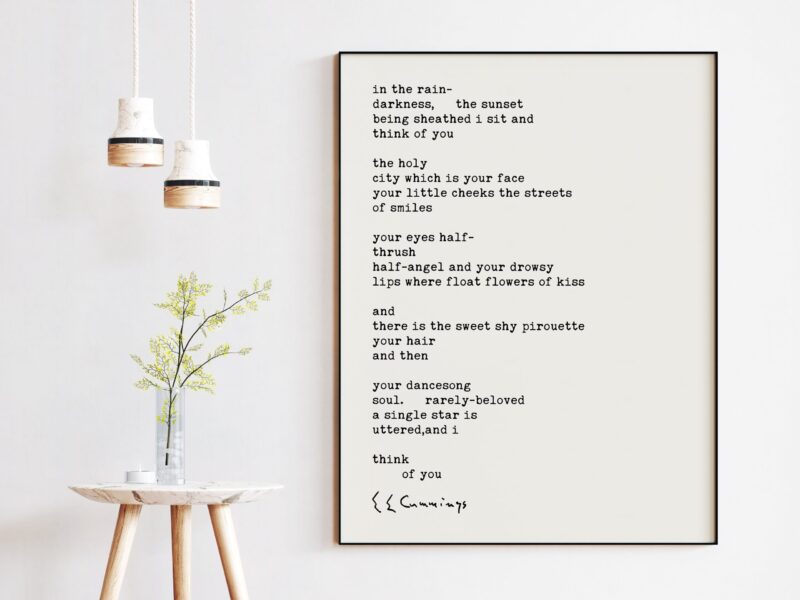 in the rain-
darkness,     the sunset
being sheathed i sit and
think of you

the holy
city which is your face
your little cheeks the streets
of smiles

your eyes half-
thrush
half-angel and your drowsy
lips where float flowers of kiss

and
there is the sweet shy pirouette
your hair
and then

your dancesong
soul.     rarely-beloved
a single star is
uttered,and i

think
     of you

E E Cummings